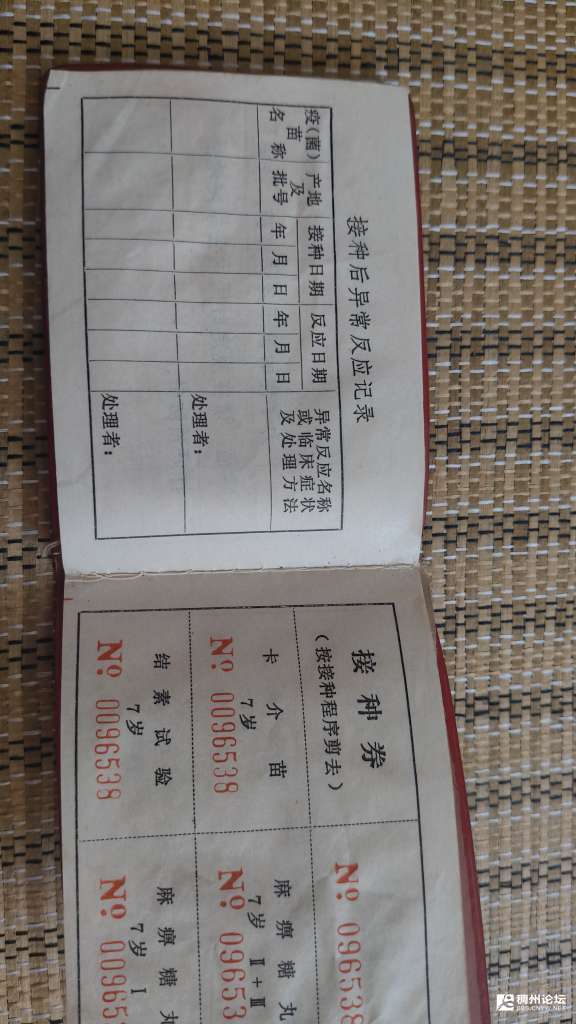 接种后异常反应记录
疫(菌)苗名称
产地及批号
接种日期
年 月 日
反应日期
年 月 日
异常反应名称或临床症状及处理方法
处理者:
处理者:
接种券
(按接种程序剪去)
No 096538
卡介苗
7岁
No 0096538
麻痹糖丸
7岁 II+III
No 09653
结素试验
7岁
No 0096538
麻痹糖丸
7岁 I
No 00965
稠州论坛
BBS.CNYW.NET